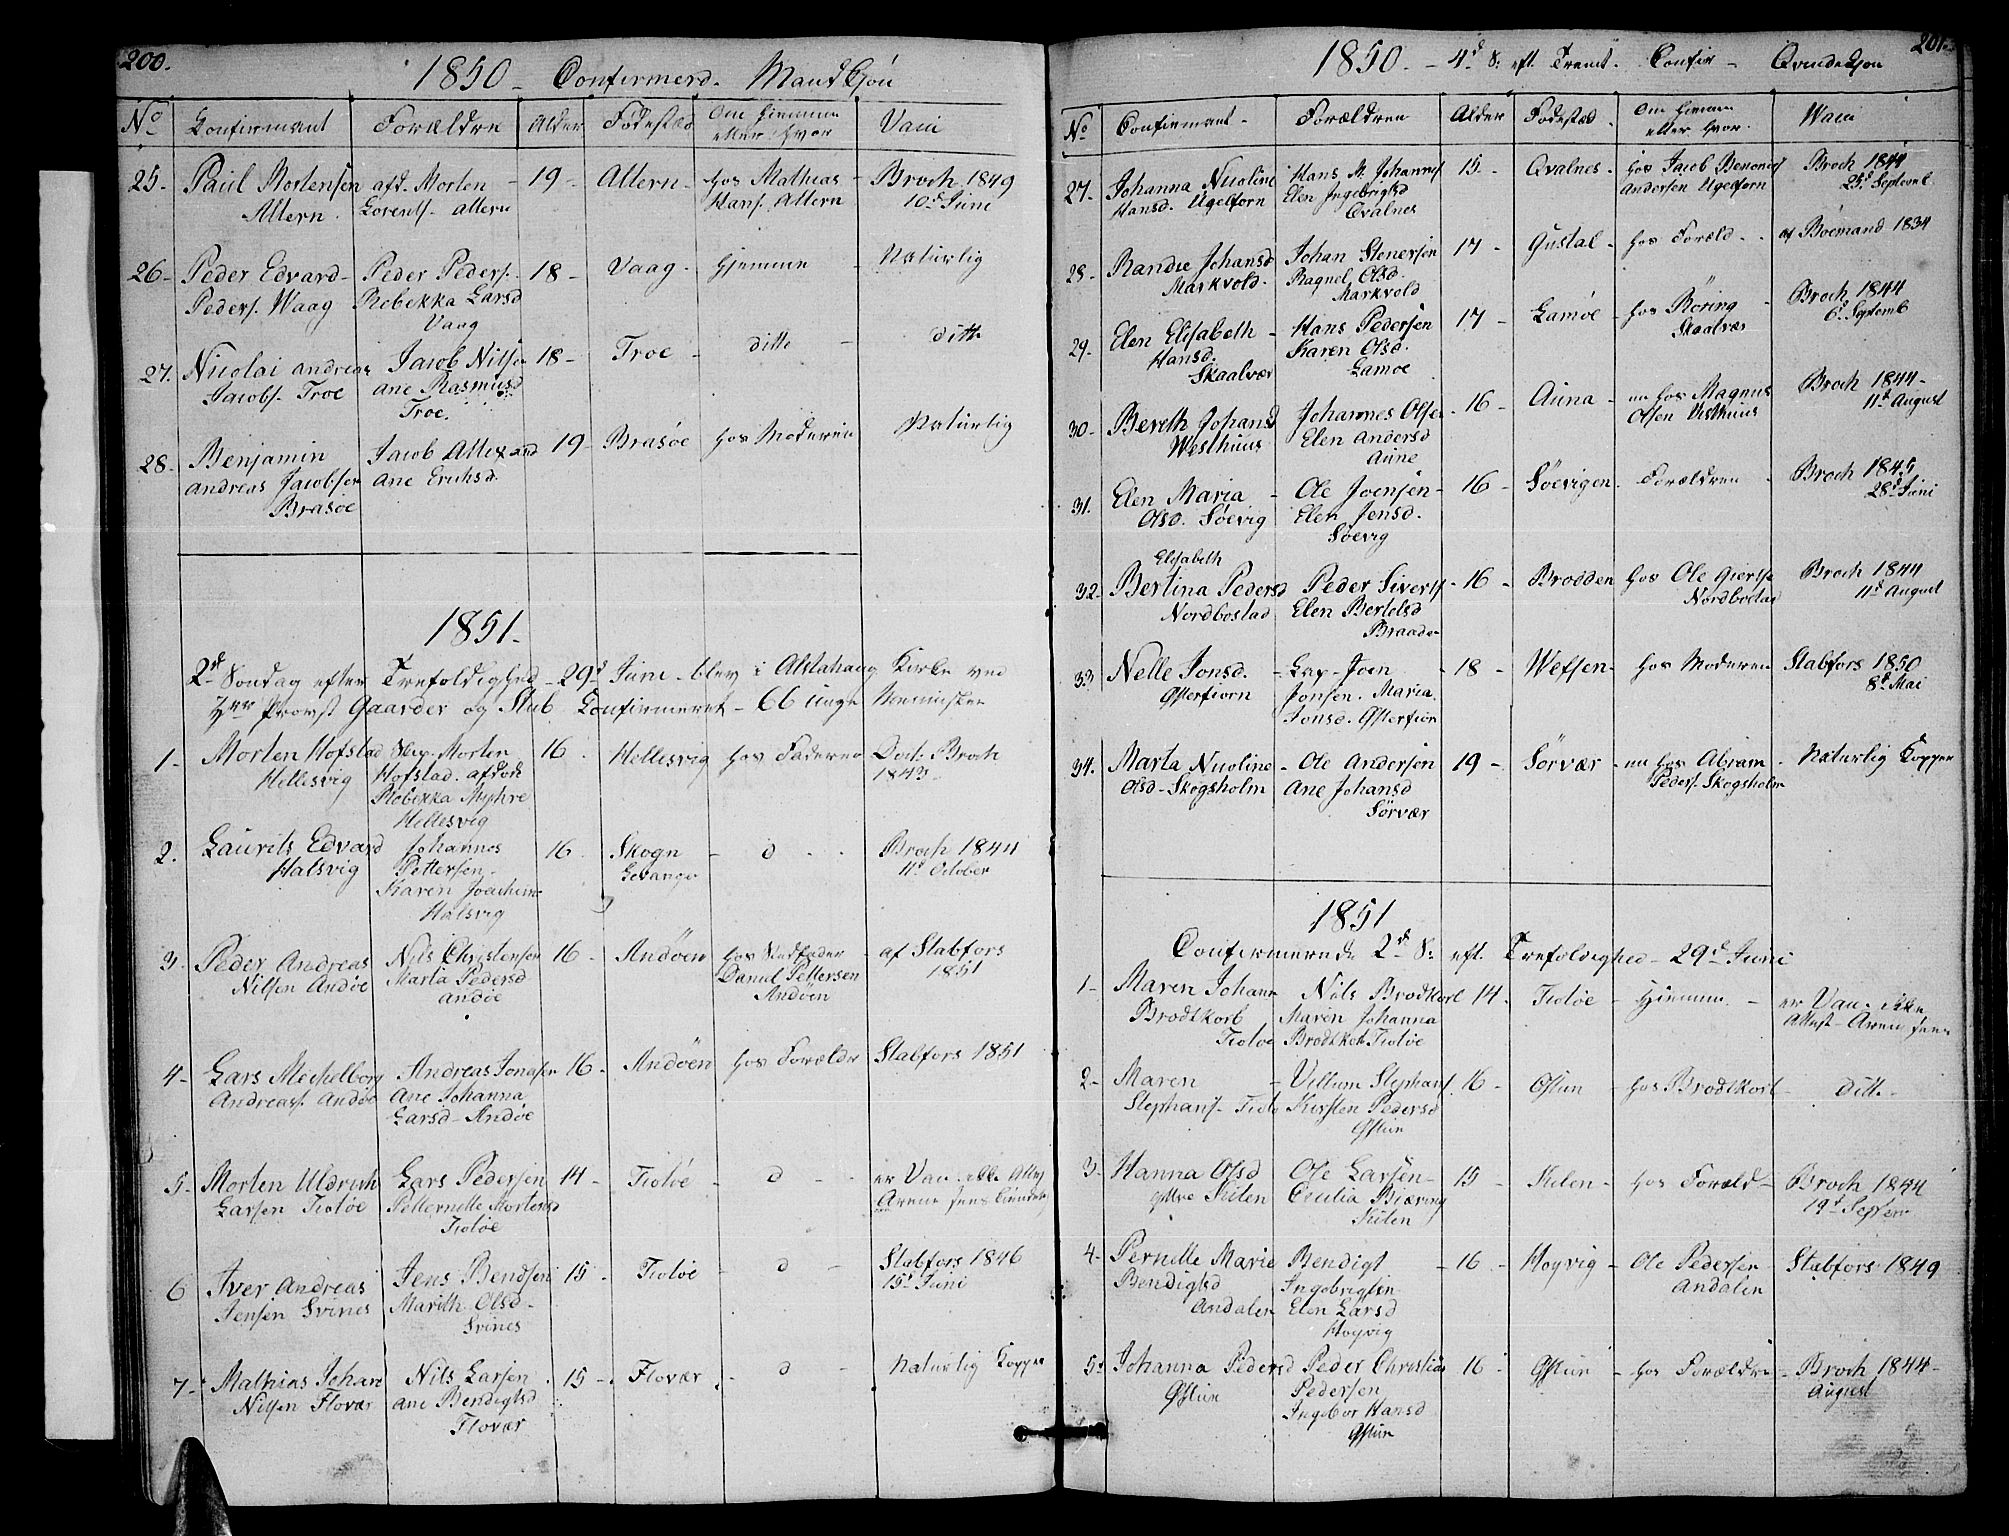 200.
1850 - Confirmerd. Mandkjøn
No Confirmant Forældre Alder Fødested Om hjemme eller hvor Vacci
25. Paul Mortensen Altern. afd. Morten Lorents. altern - 19 - Altern - hos Mathias Hans. Altern Broch 1849 10d Juni
26 - Peder Edvard Peders. Waag Peder Peders. Rebekka Larsd Vaag 18 - Vaag - hjemme - Naturlig
27. Nicolai andreas Jacobs. Troe Jacob Nilsen ane Rasmusd Troe. 18 - Troe - ditto - ditto
28. Benjamin andreas Jacobsen Brasøe Jacob Ane Erichsd. 19 - Brasøe hos Moderen Naturlig
1851.
2d Søndag efter Trefoldighed - 29d Juni - blev i Alstahaug Kirke ved
Hrr Provst Gaarder og Stub Confirmeret - 66 unge Mennisker
1 - Morten Hofstad Hellesvig Morten Hofstad. afdøde Rebekka Myhre Hellesvig 16 - Hellesvig hos Faderen Doct: Broch 1843 -
2. Laurits Edvard Halsvig Johannes Pettersen - Karen Halsvig 16 Skogn Levanger - d - - Broch 1844 4d October
3. Peder Andreas Nilsen Andøe Nils Christensen Marta Pedersd andøe 16 - Andöen hos Stedfader Daniel Pettersen Andöen - af Stabfors 1851
4 - Lars Mechelborg Andreass. Andøe Andreas Jonasen Ane Johanna Larsd - Andøe 16 - Andöen hos Forældr Stabfors 1851
5 - Morten Uldrich Larsen Tiøtøe Lars Pedersen Petternelle Mortensd Tiøtøe 14 - Tiøtøe - d - - er Vac. ikke Attest
6 Iver Andreas Jensen Svines Jens Bendsen Marith Olsd - Svines 15 - Tiøtøe - d - Stabfors 1846 15d Juni
7 - Mathias Johan Nilsen Flovær Nils Larsen ane Bendigtsd Flovær 15 - Flovær - d - Naturlig Kopper
201.
1850 - 4d S. eft. Trenit. Confir - Qvindekjøn
No Confirmant - Forældren Alder Fødested - Om hjemme eller hvor. Waxi
27 - Johanna Nicoline Hansd. Ugelforn Hans M. Johannes Elen Ingebrigtsd Qvalnes 15 - Qvalnes - hos Jacob Benonias andersen Ugelforn Broch 1844 25d Septemb
28 - Randie Johansd Markvold. Johan Stenersen Ragnel Olsd. Markvold 17 - Gustal - hos Foræld - - af Boemand 1834
29. Elen Elisabeth Hansd. Skaalvær Hans Pedersen Karen Olsd. Lamøe 17 - Lamøe - hos Röring Skaalvær Broch 1844 6d Septemb
30 - Bereth Johansd Westhuus Johannes Olsen Elen Andersd Aune - 16 - Auna - nu hos Magnus Olsen Vesthuus Broch 1844 - 11d August
31. Elen Maria Olsd. Søevig Ole Joensen Elen Jensd. Søevig - 16 - Søevigen - Forældren - Broch 1845 28d Juni
32 - Elisabeth Bertina Pedersd Nordbostad Peder Siverts Elen Bertelsd Braaden - 16 - Brodden hos Ole Nordbostad Broch 1844 11d August
33 Nelle Jonsd. - Lap - Joen Jonsen. Maria Jonsd. - 18 - Wefsen - hos Moderen Stabfors 1850 8d Mai
34. Marta Nicoline Olsd - Skogsholm - Ole Andersen Ane Johansd Sörvær 19 - Sörvær - nu hos Abram Peders. Skogsholm - Naturlig Kopper
1851
Confirmerede 2d S. eft. Trefoldighed - 29d Juni
1 - Maren Johann Brodtkorb Tiøtøe Nils Brodtkorb Maren Johanna Brodtkorb Tiøtøe 14 - Tiøtøe - Hjemme - er Vac. ikke Attest -
2 - Maren Stephans. Tiøtø - Villum Stephans Kirsten Pedersd 16 - - hos Brodtkorb - ditto -
3 - Hanna Olsd Kilen Ole Larsen - Cecilia Biering Kilen 15 - Kilen - hos Foræld - Broch 1844 19d Septem
4 - Pernelle Marie Bendigtsd Andalen Bendigt Ingebrigtsen Elen Larsd Høyvig - 16 - Høyvig - Ole Pedersen Andalen Stabfors 1849
5 - Johanna Pedersd Peder Christian Pedersen Ingebor Hansd 16 - - hos Forældre - Broch 1844 - August